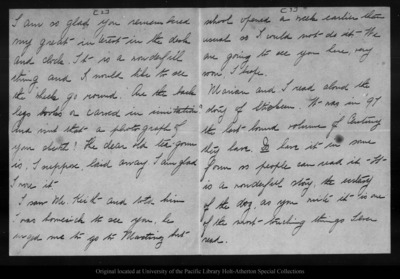 [2]
I am so glad you remembered
my great interest in the desk
and clock. It is a wonderful
thing and I would like to see
the clock go round. Are the back
legs books or carved in imitation?
And not a photograph of
you shorts! The dear old tea gown
is, I suppose, laid away. I am glad
I wore it.
I saw Mr. Keith and told him
I was homesick to see you, he
urged me to go to Martinez but
[3]
school opened a week earlier than
usual so I could not do it. We
are going to see you here, very
soon, I hope.
Marian and I read aloud the
story of Stickeen. It was in '97
the last bound volume of Century
they have. Do have it in some
form so people can read it. It
is a wonderful story, the ecstasy
of the dog, as you write it is one
of the most touching things I ever
read.
Original located at University of the Pacific Library Holt-Atherton Special Collections